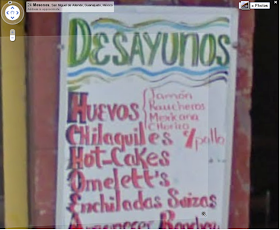 DESAYUNOS
HUEVOS
Jamón
Rancheros
Mexicana
CHorizo
CHilaquiles
pollo
Hot-Cakes
Omelett's
Enchiladas Suizas